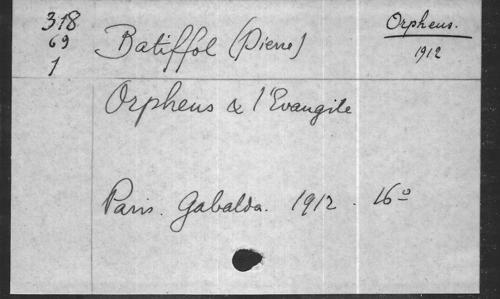 318
69
1
Batiffol (Pierre)
Orpheus.
1912
Orpheus & l'Evangile
Paris. Gabalda. 1912. 16º